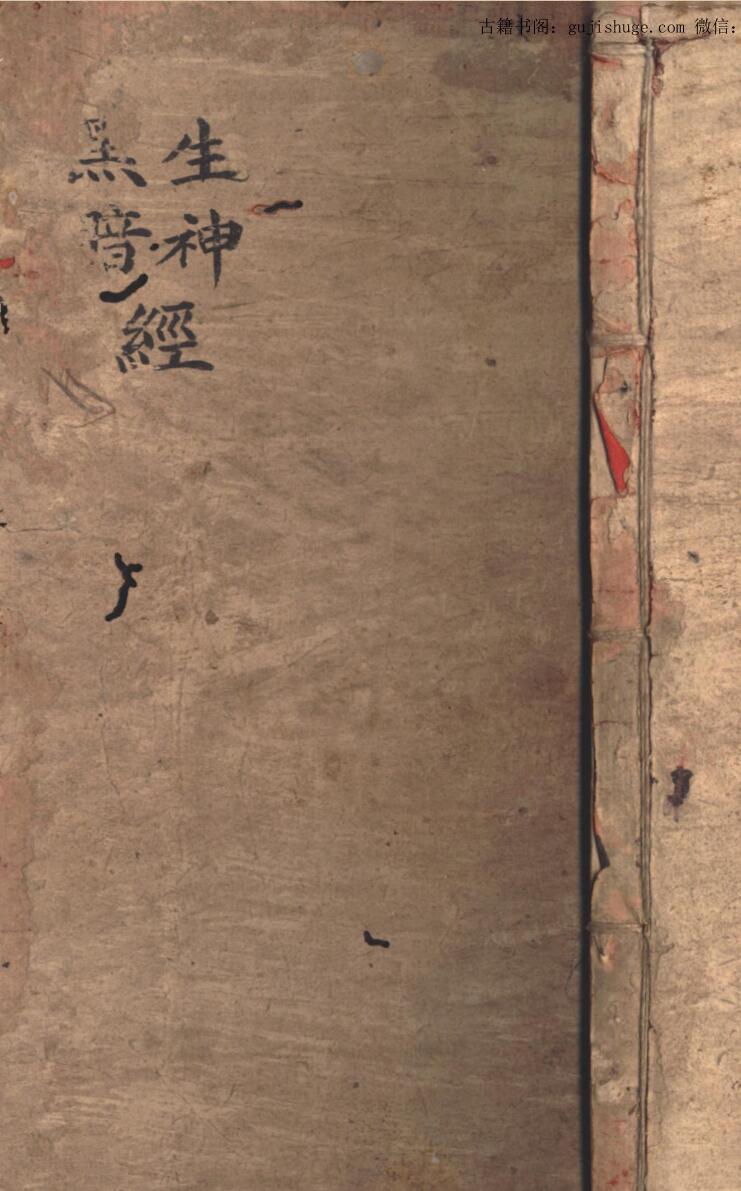 古籍书阁：gujishuge.com 微信：
生神
黑暗
經